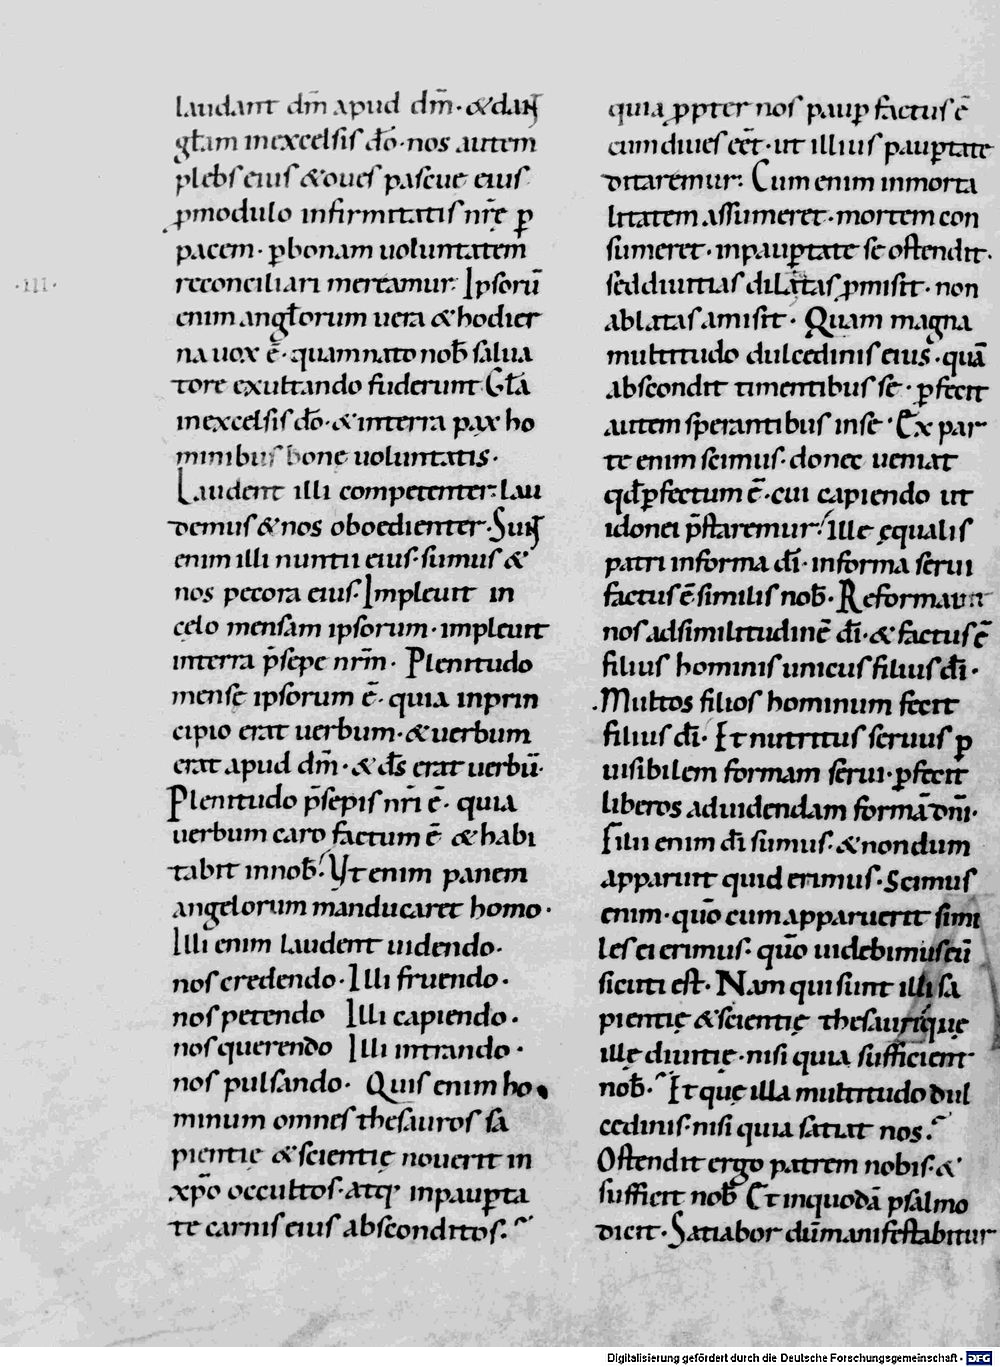 laudant dm̄ apud dm̄· & dant
głam inexcelsis dō· nos autem
plebs eius & oues pascuę eius
ꝓmodulo infirmitatis nrę̄ ꝑ
pacem· ꝑbonam uoluntatem
reconciliari mereamur· Ipsorū
·III·
enim angłorum uera & hodier
na uox ē· quam nato nob̄ salua
tore exultando fuderunt Gła
inexcelsis dō· & interra pax ho
minibus bonę uoluntatis·
Laudent illi competenter· lau
demus & nos oboedienter· Sunt
enim illi nuntii eius· sumus &
nos pecora eius· Impleuit in
cęlo mensam ipsorum· impleuit
interra p̄sepe nrm̄· Plenitudo
mensę ipsorum ē· quia inprin
cipio erat uerbum· & uerbum
erat apud dm̄· & ds̄ erat uerbū·
Plenitudo p̄sepis nri̅ ē· quia
uerbum caro factum ē & habi
tabit innob̄· Ut enim panem
angelorum manducaret homo·
Illi enim laudent uidendo·
nos credendo· Illi fruendo·
nos petendo Illi capiendo·
nos querendo Illi intrando·
nos pulsando· Quis enim ho
minum omnes thesauros sa
pientię & scientię nouerit in
xp̄o occultos· atq· inpauꝑta
te carnis eius absconditos·
quia ꝓpter nos pauꝑ factus ē
cum diues eēt· ut illius pauꝑtate
ditaremur· Cum enim inmorta
litatem assumeret· mortem con
sumeret· inpauꝑtate se ostendit·
sed diuitias dilatas ꝓmisit· non
ablatas amisit· Quam magna
multitudo dulcedinis eius· quā
abscondit timentibus se· ꝑfecit
autem sperantibus inse· Ex par
te enim scimus· donec ueniat
qđ ꝑfectum ē· cui capiendo ut
idonei p̄staremur· Ille ęqualis
patri informa dī· informa serui
factus ē similis nob̄· Reformauit
nos adsimilitudinē dī· & factus ē
filius hominis unicus filius dī·
Multos filios hominum fecit
filius dī· Et nutritus seruus ꝑ
uisibilem formam serui· ꝑfecit
liberos aduidendam formā dnī·
Filii enim dī sumus· & nondum
apparuit quid erimus· Scimus
enim· quō cum apparuerit simi
les ei erimus· quō uidebimus eū
sicuti est· Nam qui sunt illi sa
pientię & scientię thesauri· quę
illę diuitię· nisi quia sufficient
nob̄· Et quę illa multitudo dul
cedinis· nisi quia satiat nos·
Ostendit ergo patrem nobis· &
sufficit nob̄ Et inquodā psalmo
dicit· Satiabor dū manifestabitur
Digitalisierung gefördert durch die Deutsche Forschungsgemeinschaft - DFG